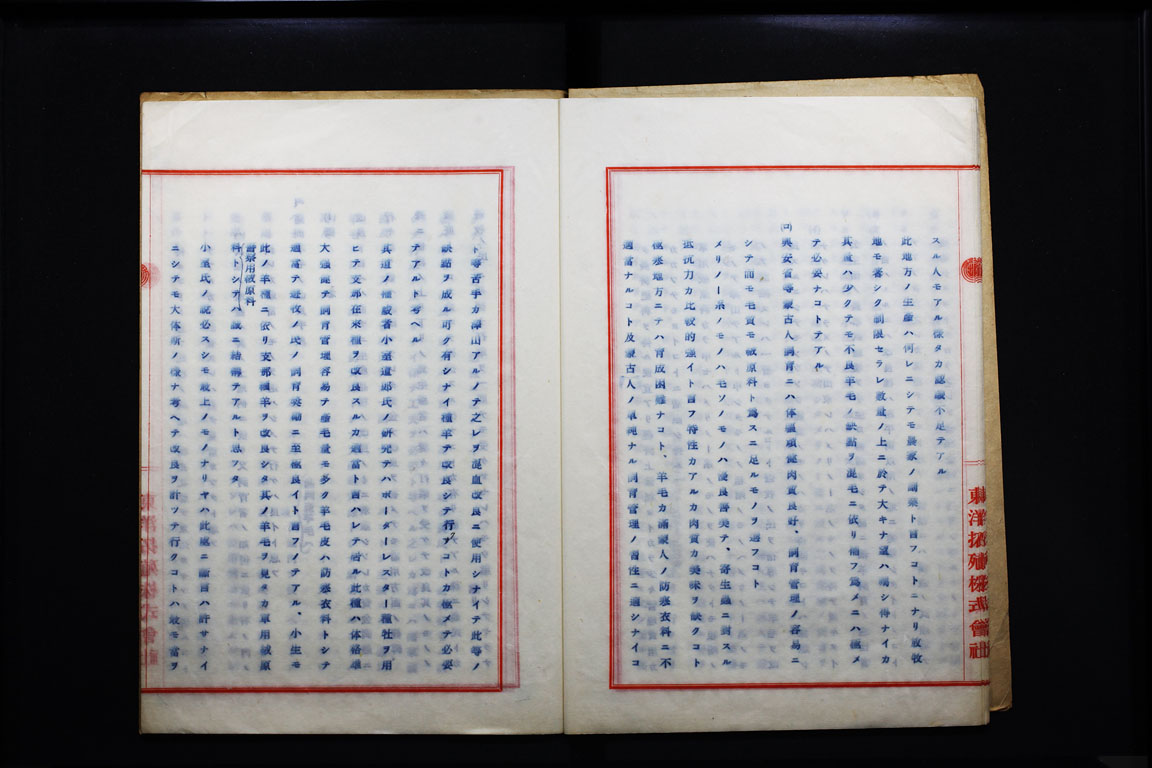 スル人モアル樣タカ認識不足テアル
此地方ノ生產ハ何レニシテモ農家ノ副業ト言フコトニナリ放牧
地モ著シク制限セラレ數量ノ上ニ於テ大キナ望ハ嘱シ得ナイカ
其量ハ少クテモ不良羊毛ノ缺點ヲ混毛ニ依リ補フ爲メニハ極メ
テ必要ナコトテアル
(ロ)興安省等蒙古人飼育ニハ体軀頑健肉質良好、飼育管理ノ容易ニ
シテ而モ毛質モ絨原料ト爲スニ足ルモノヲ選フコト
メリノー系ノモノハ毛ソノモノハ優良善美テ、寄生蟲ニ對スル
抵抗力カ比較的強イト言フ特性カアルカ肉質カ美味ヲ缺クコト
極寒地方ニテハ育成困難ナコト、羊毛カ滿蒙人ノ防寒衣料ニ不
適當ナルコト及蒙古人ノ單純ナル飼育管理ノ習性ニ適シナイコ
東洋拓殖株式會社
ト等苦手カ澤山アルノテ之レヲ混血改良ニ使用シナイテ此等ノ
缺點ヲ成ル可ク有シナイ種羊テ改良シテ行クコトカ極メテ必要
ニテアルト考ヘル
其道ノ權威者小室道郎氏ノ研究テハボーダーレスター種牡ヲ用
ヒテ支那在來種ヲ改良スルカ適當ト言ハレテ居ル此種ハ体格雄
大強健テ飼育管理容易テ產毛量モ多ク羊毛皮ハ防寒衣料トシテ
適當テ遊牧ノ民ノ飼育獎勵ニ至極良イト言フノテアル、小生モ
此ノ羊種ニ依リ支那緬羊ヲ改良シタ其ノ羊毛ヲ見タカ軍用絨原
料、トシテハ誠ニ結構テアルト思ツタ
警察用絨原料
小室氏ノ說必スシモ最上ノモノナリヤハ此處ニ斷言ハ許サナイ
ニシテモ大体斯ノ樣ナ考ヘテ改良ヲ計ツテ行クコトハ最モ當ヲ